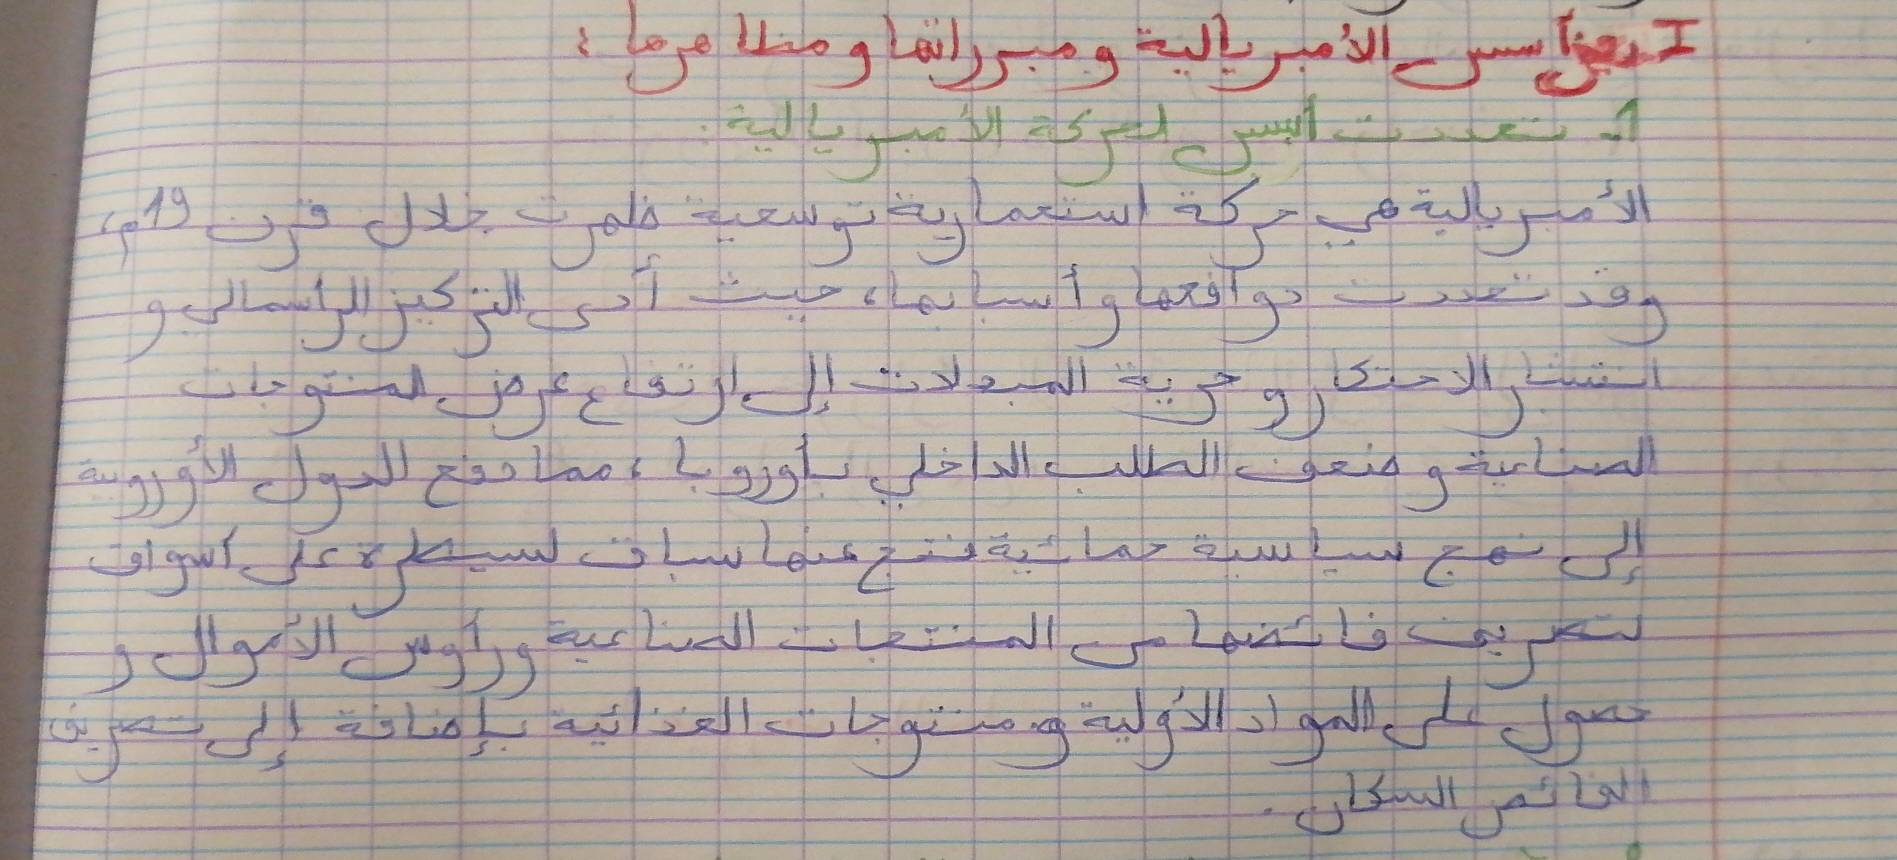 I أسس الأمبريالية ومبرراتها ومظاهرها :
1. تعددت أسس لحركة الأمبريالية.
الأمبريالية هي حركة استعمارية توسعية ظهرت خلال قرن 19م،
وقد تعددت دوافعها وأسبابها، حيث أدى التركيز الرأسمالي و
انتشار الاحتكار و حرية المبدلات إلى ارتفاع عرض المنتوجات
الصناعية وضعف الطلب الداخلي بأوروبا، مما دفع الدول الأوروبية
إلى نهج سياسية حمائية فنتج عنها سباق لسيطرة على أسواق
لتصريف فائضها من المنتجات الصناعية ورأوس الأموال و
حصول على المواد الأولية ومنتوجات الغذائية بإضافة إلى تصريف
الفائض السكان.